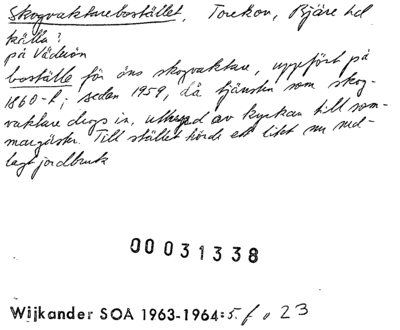 Skogvaktarebostället, Torekov, Bjäre hd
källa?
på Väderön
boställe för öns skogvaktare, uppfört på
1860-t; sedan 1959, då tjänsten som skog-
vaktare drogs in, uthyrd av kyrkan till som-
margäster. Till stället hörde ett litet nu ned-
lagt jordbruk
00031338
Wijkander SOA 1963-1964:5. f o 23